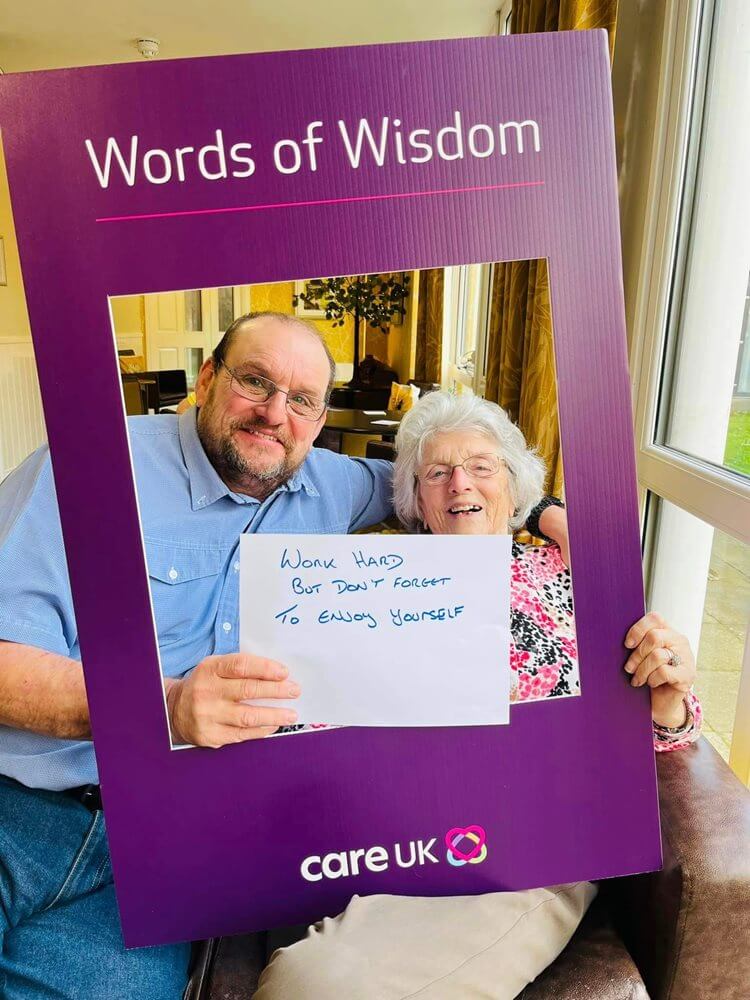 Words of Wisdom
WORK HARD
BUT DON'T FORGET
TO ENJOY YOURSELF
care UK